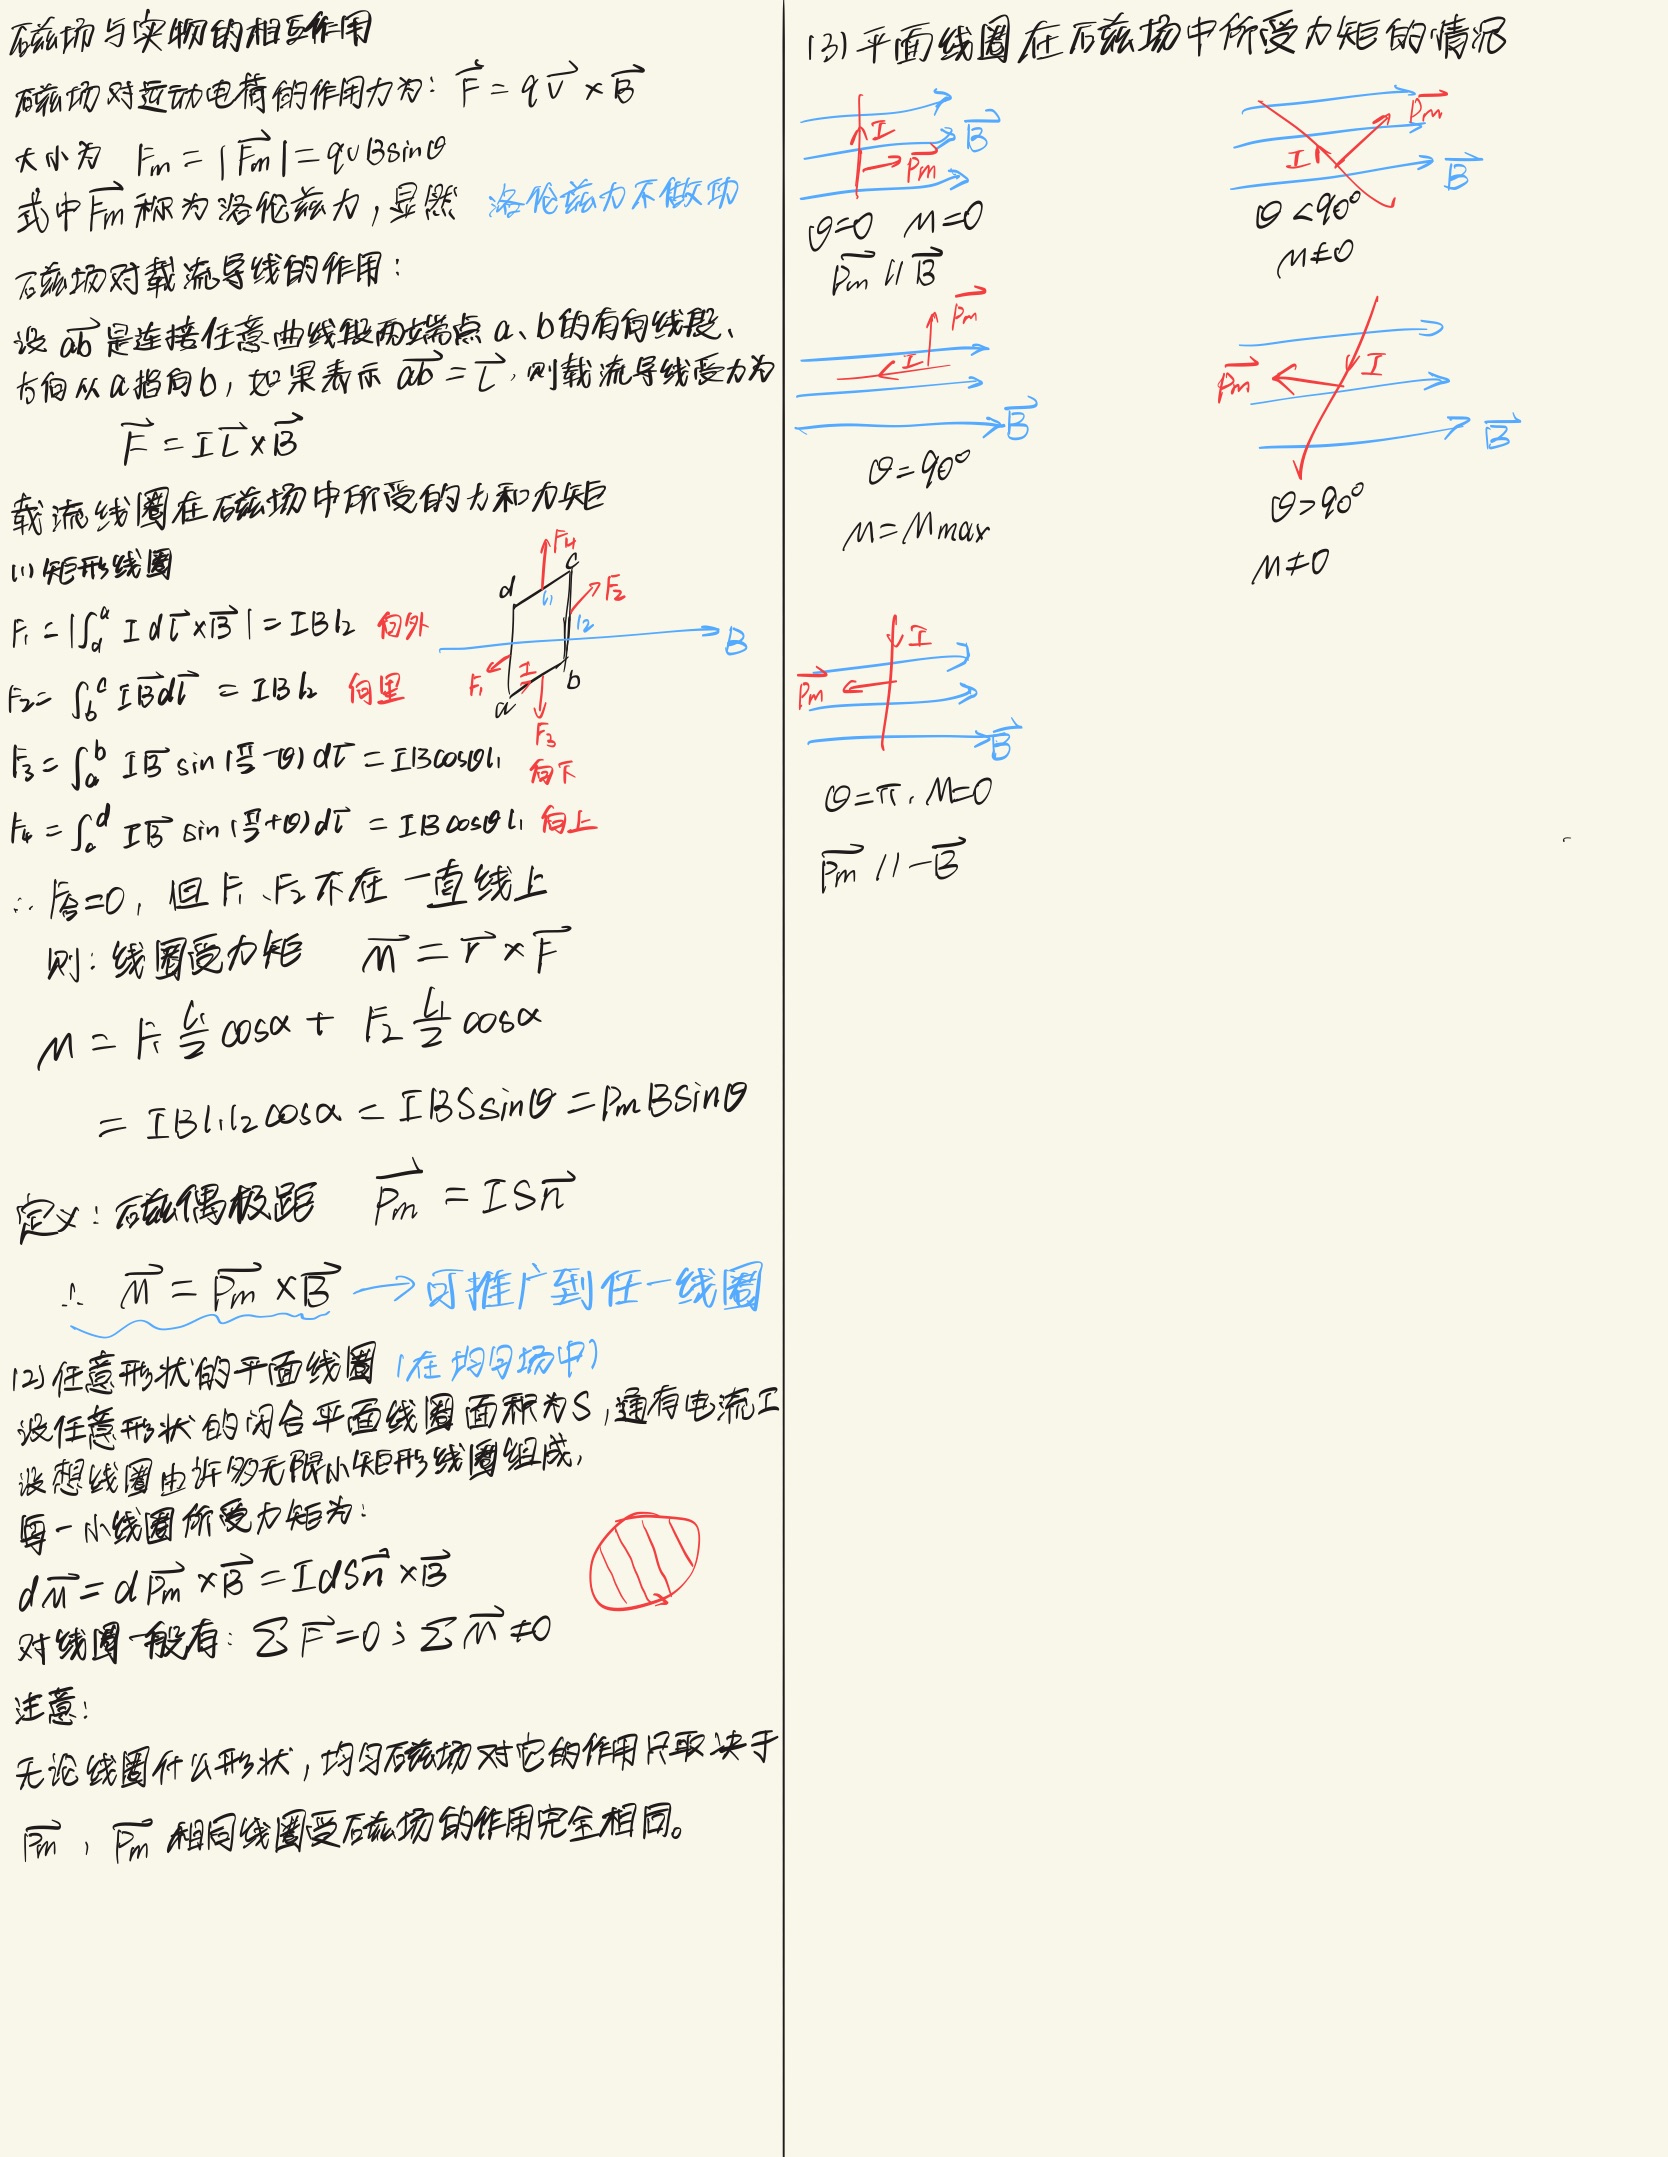 磁场与实物的相互作用
磁场对运动电荷的作用力为: F⃗ = qv⃗ × B⃗
大小为 Fm = |F⃗m| = qvBsinθ
式中F⃗m称为洛伦兹力,显然 洛伦兹力不做功
磁场对载流导线的作用:
设 ab⃗ 是连接任意曲线段两端点 a、b的有向线段、
方向从a指向b,如果表示 ab⃗ = L⃗,则载流导线受力为
F⃗ = IL⃗ × B⃗
载流线圈在磁场中所受的力和力矩
(1)矩形线圈
F₁ = |∫_d^a I dl⃗ × B⃗| = IBl₂ 向外
F₂ = ∫_b^c IB⃗dl⃗ = IBl₂ 向里
F₃ = ∫_a^b IB⃗ sin(π/2-θ) dl⃗ = IBcosθl₁ 向下
F₄ = ∫_c^d IB⃗ sin(π/2+θ) dl⃗ = IBcosθl₁ 向上
F₄
d
c
F₂
l₁
l₂
B
F₁
I
b
a
F₃
∴ F合=0, 但 F₁、F₂不在一直线上
则: 线圈受力矩 M⃗ = r⃗ × F⃗
M = F₁ l₁/2 cosα + F₂ l₁/2 cosα
= IBl₁l₂cosα = IBSsinθ = PmBsinθ
定义: 磁偶极距 P⃗m = ISn⃗
∴ M⃗ = P⃗m × B⃗ → 可推广到任一线圈
(2)任意形状的平面线圈 (在均匀场中)
设任意形状的闭合平面线圈面积为S,通有电流I
设想线圈由许多无限小矩形线圈组成,
每一小线圈所受力矩为:
dM⃗ = dP⃗m × B⃗ = IdSn⃗ × B⃗
对线圈一般有: ∑F⃗ = 0; ∑M⃗ ≠ 0
注意:
无论线圈什么形状,均匀磁场对它的作用只取决于
P⃗m , P⃗m 相同线圈受磁场的作用完全相同。
(3)平面线圈在磁场中所受力矩的情况
I
B⃗
P⃗m
θ=0 M=0
P⃗m // B⃗
P⃗m
I
B⃗
θ<90°
M≠0
P⃗m
I
B⃗
θ=90°
M=Mmax
P⃗m
I
B⃗
θ>90°
M≠0
I
P⃗m
B⃗
θ=π, M=0
P⃗m // -B⃗